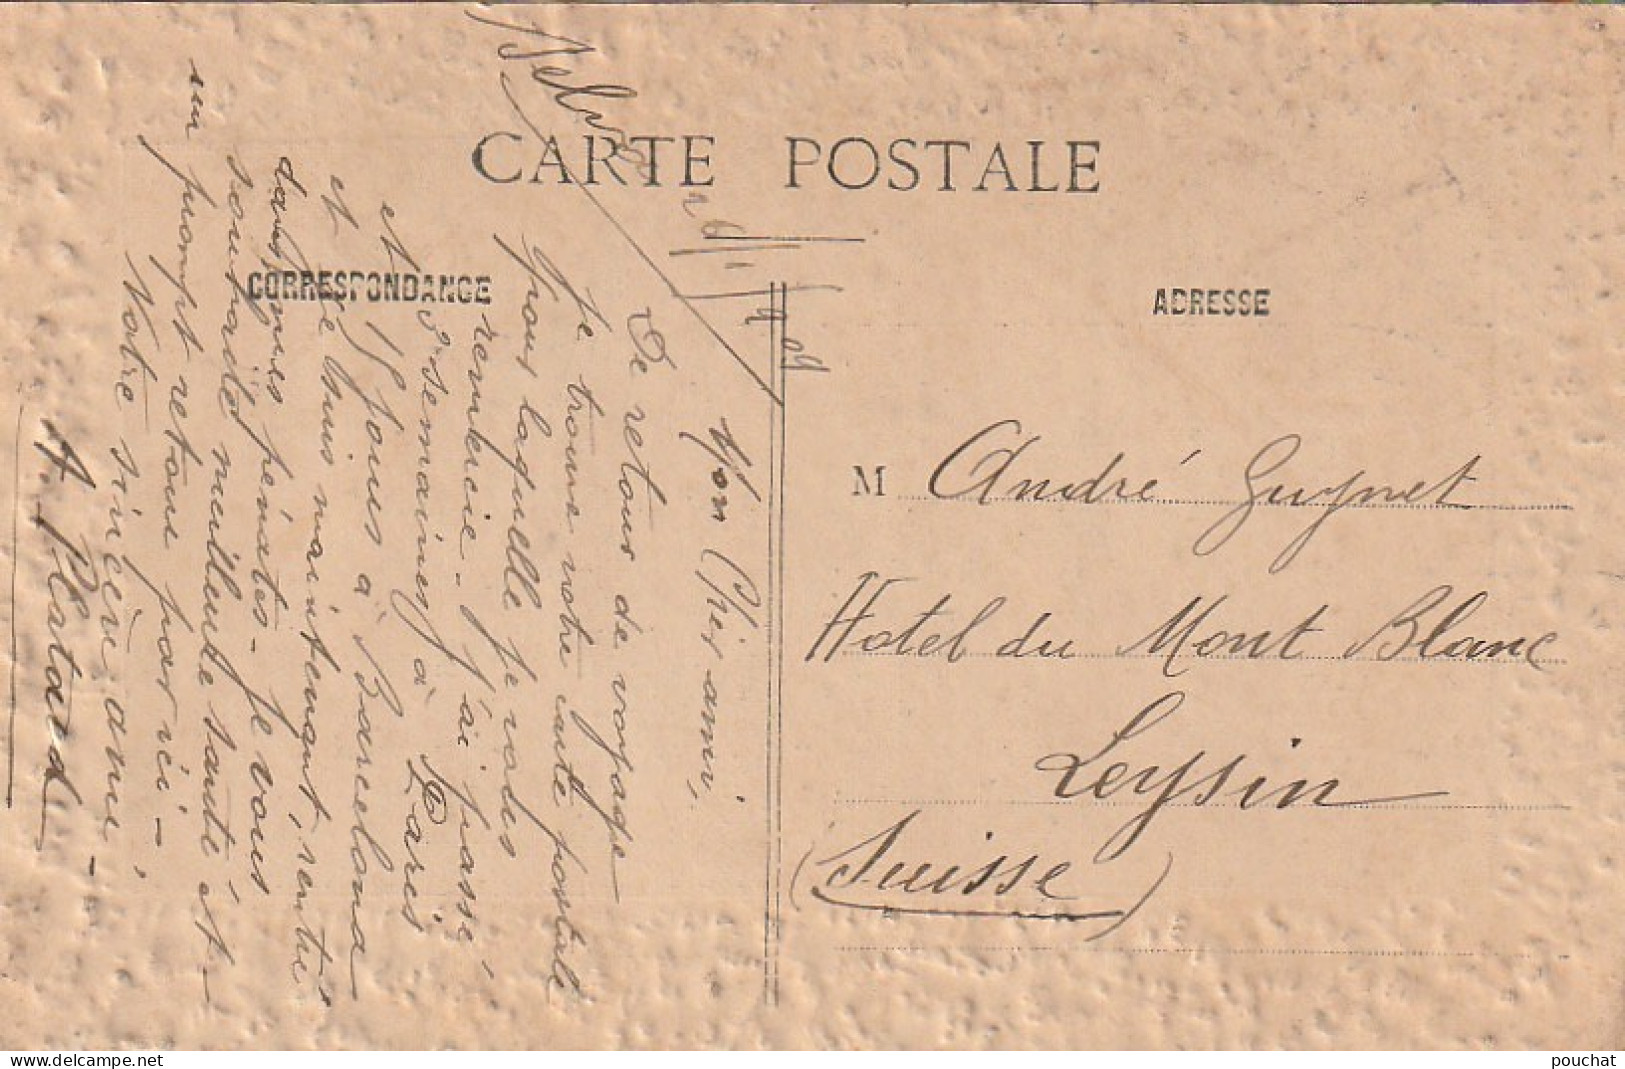 CARTE POSTALE
CORRESPONDANCE
ADRESSE
6/1/09
Mon Cher ami,
De retour de voyage
je trouve votre carte postale
pour laquelle je vous
remercie - J'ai passé
3 semaines à Paris
et 15 jours à Barcelona
et me suis maintenant, rentré
dans mes pénates - Je vous
souhaite meilleure santé et
un prompt retour par ici -
Votre sincère ami -
A. Platard
M André Guynet
Hotel du Mont Blanc
Leysin
(Suisse)
pouchat
www.delcampe.net